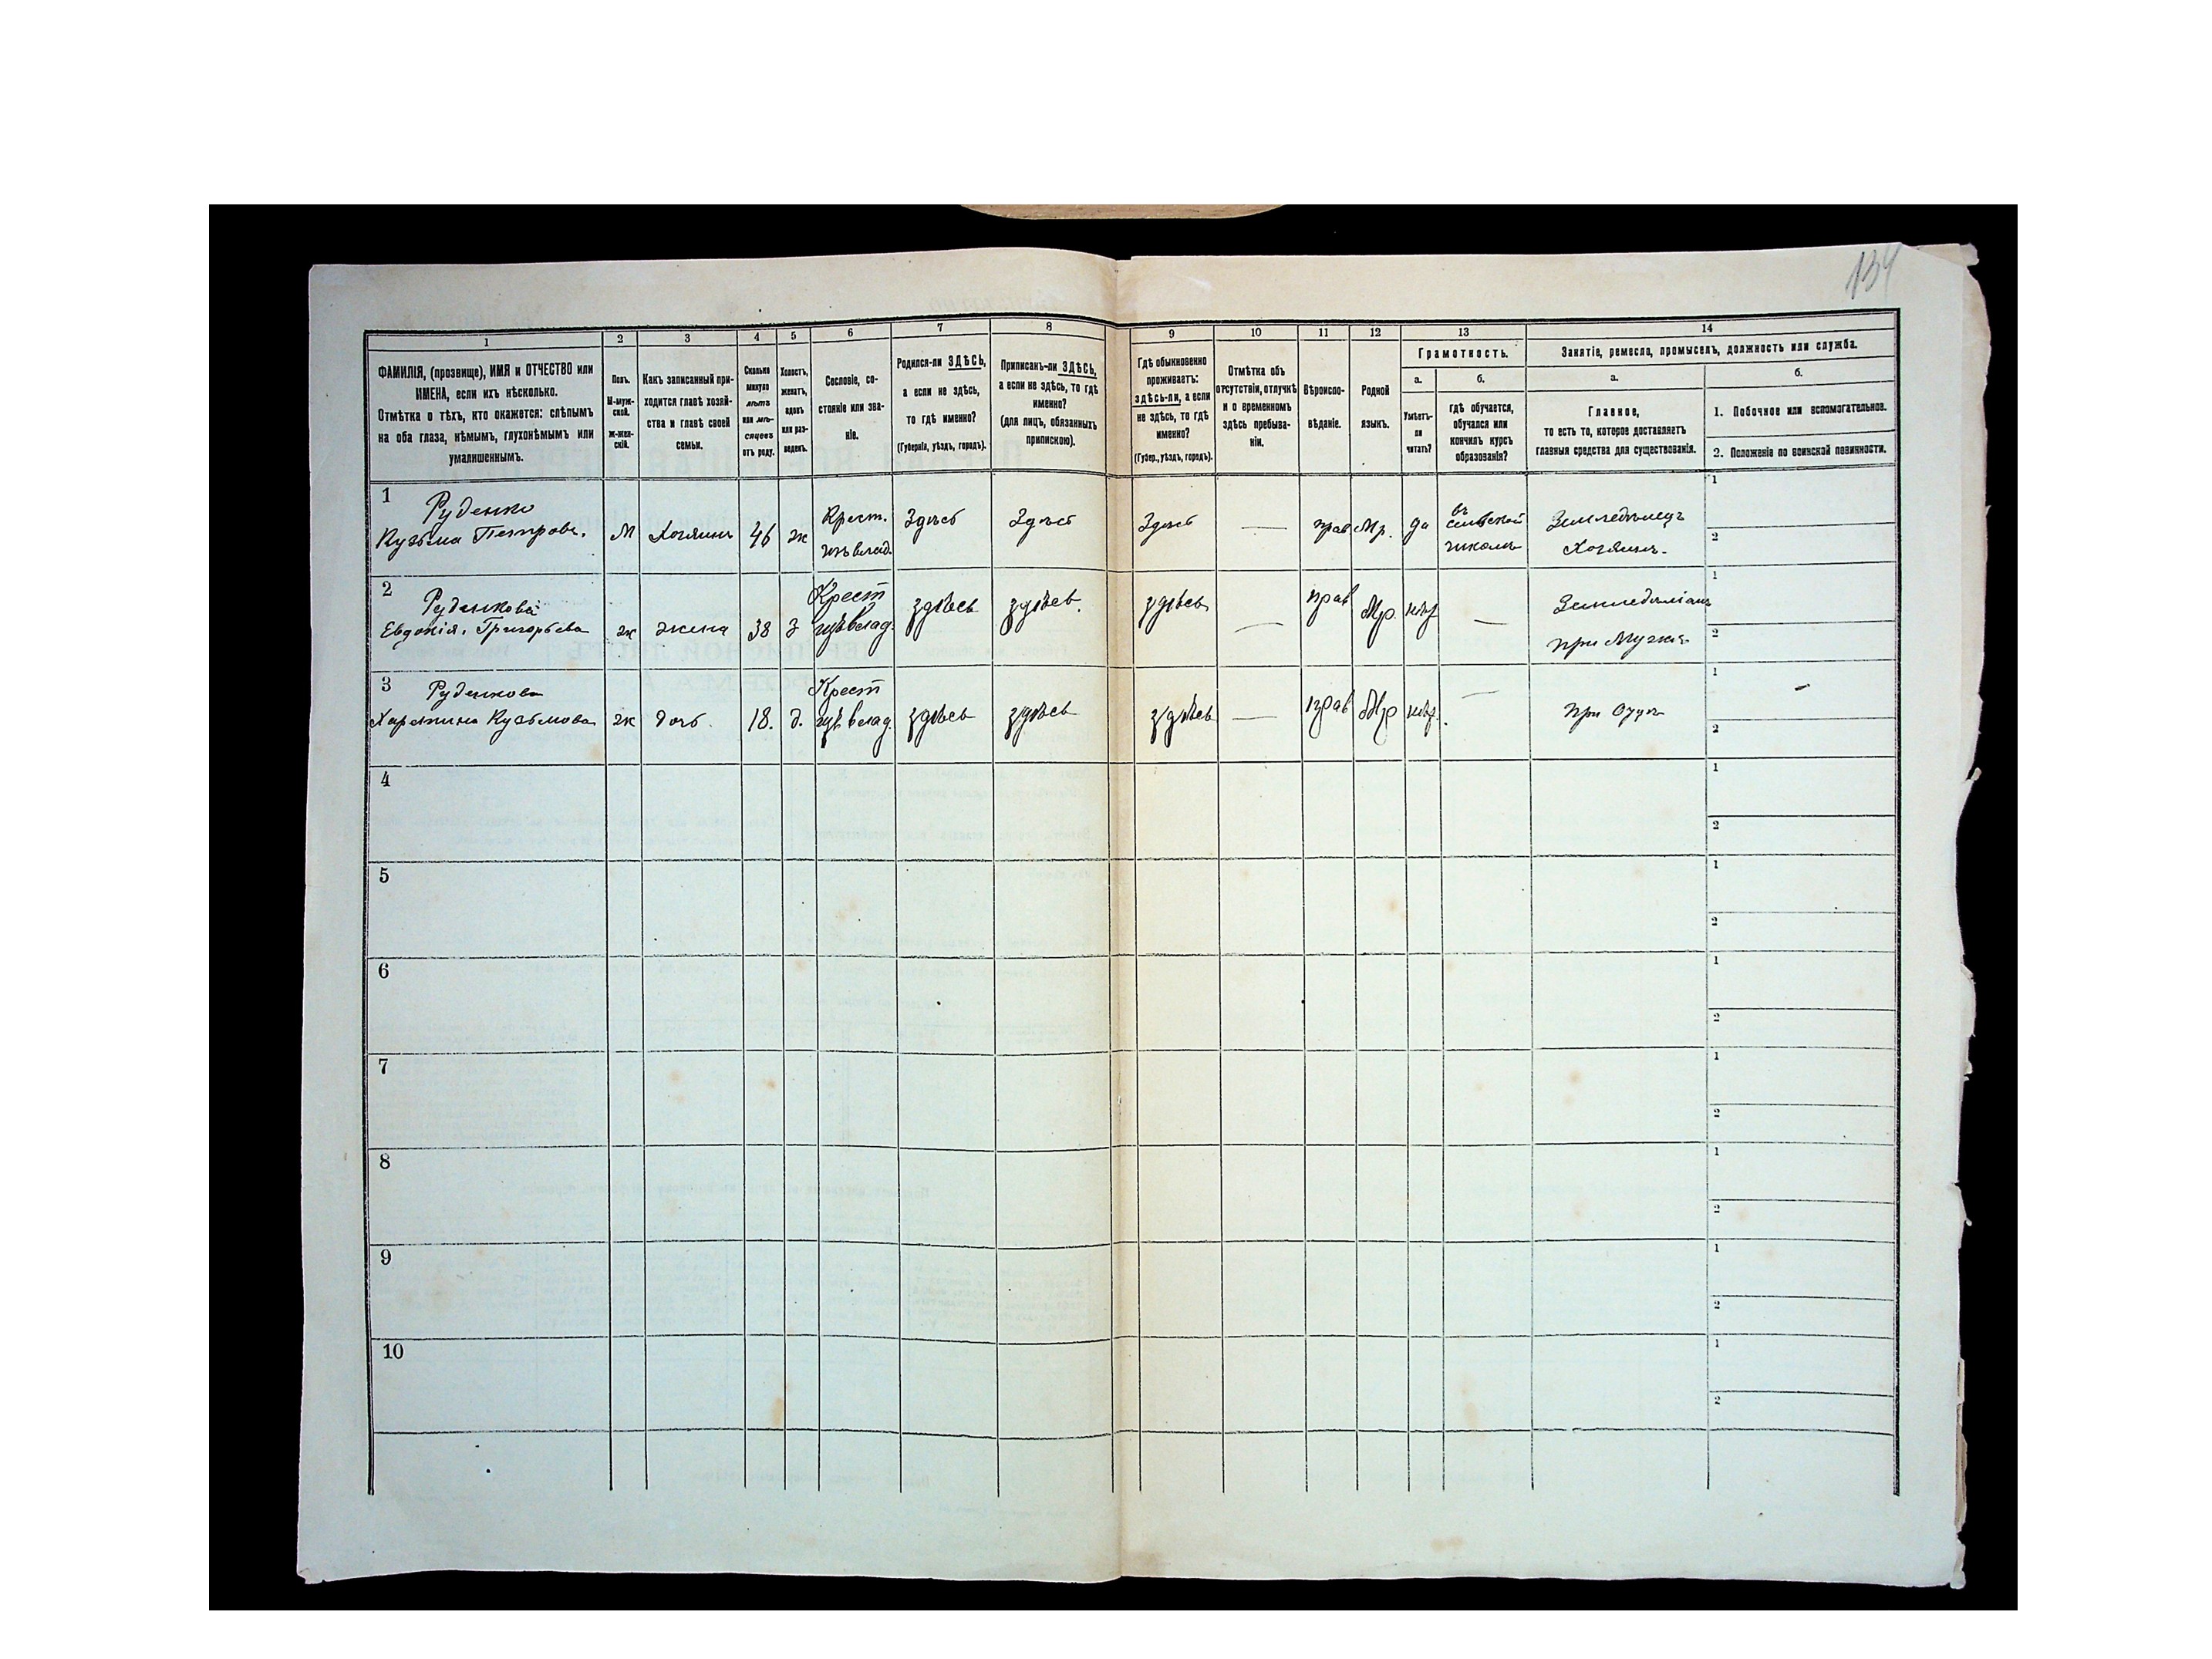 134
1
2
3
4
5
6
7
8
9
10
11
12
13
14
ФАМИЛІЯ, (прозвище), ИМЯ и ОТЧЕСТВО или
ИМЕНА, если ихъ нѣсколько.
Отмѣтка о тѣхъ, кто окажется: слѣпымъ
на оба глаза, нѣмымъ, глухонѣмымъ или
умалишеннымъ.
Полъ.
М-муж-
ской.
Ж-жен-
скій.
Какъ записанный при-
ходится главѣ хозяй-
ства и главѣ своей
семьи.
Сколько
минуло
лѣтъ
или мѣ-
сяцевъ
отъ роду.
Холостъ,
женатъ,
вдовъ
или раз-
веденъ.
Сословіе, со-
стояніе или зва-
ніе.
Родился-ли ЗДѢСЬ,
а если не здѣсь,
то гдѣ именно?
(Губернія, уѣздъ, городъ).
Приписанъ-ли ЗДѢСЬ,
а если не здѣсь, то гдѣ
именно?
(для лицъ, обязанныхъ
припискою).
Гдѣ обыкновенно
проживаетъ:
здѣсь-ли, а если
не здѣсь, то гдѣ
именно?
(Губер., уѣздъ, городъ).
Отмѣтка объ
отсутствіи, отлучкѣ
и о временномъ
здѣсь пребыва-
ніи.
Вѣроиспо-
вѣданіе.
Родной
языкъ.
Грамотность.
а.
Умѣетъ-
ли
читать?
б.
гдѣ обучается,
обучался или
кончилъ курсъ
образованія?
Занятіе, ремесло, промыселъ, должность или служба.
а.
Главное,
то есть то, которое доставляетъ
главныя средства для существованія.
б.
1. Побочное или вспомогательное.
2. Положеніе по воинской повинности.
1
Руденко
Кузьма Петровъ.
М
Хозяинъ
46
ж
Крест.
изъ влад.
Здѣсь
Здѣсь
Здѣсь
—
прав
Мр.
да
въ
сельской
школѣ
Земледѣлецъ
Хозяинъ.
1
2
2
Руденкова
Евдокія Григорьева
ж
жена
38
з
Крест
изъ влад.
здѣсь
здѣсь.
здѣсь
—
прав
Мр.
нѣт
—
при Мужѣ
1
2
3
Руденкова
Кузьмова
ж
дочь
18.
д.
Крест
изъ влад.
здѣсь
здѣсь
здѣсь
—
прав
Мр
нѣт.
—
при Отцѣ
1
2
4
1
2
5
1
2
6
1
2
7
1
2
8
1
2
9
1
2
10
1
2